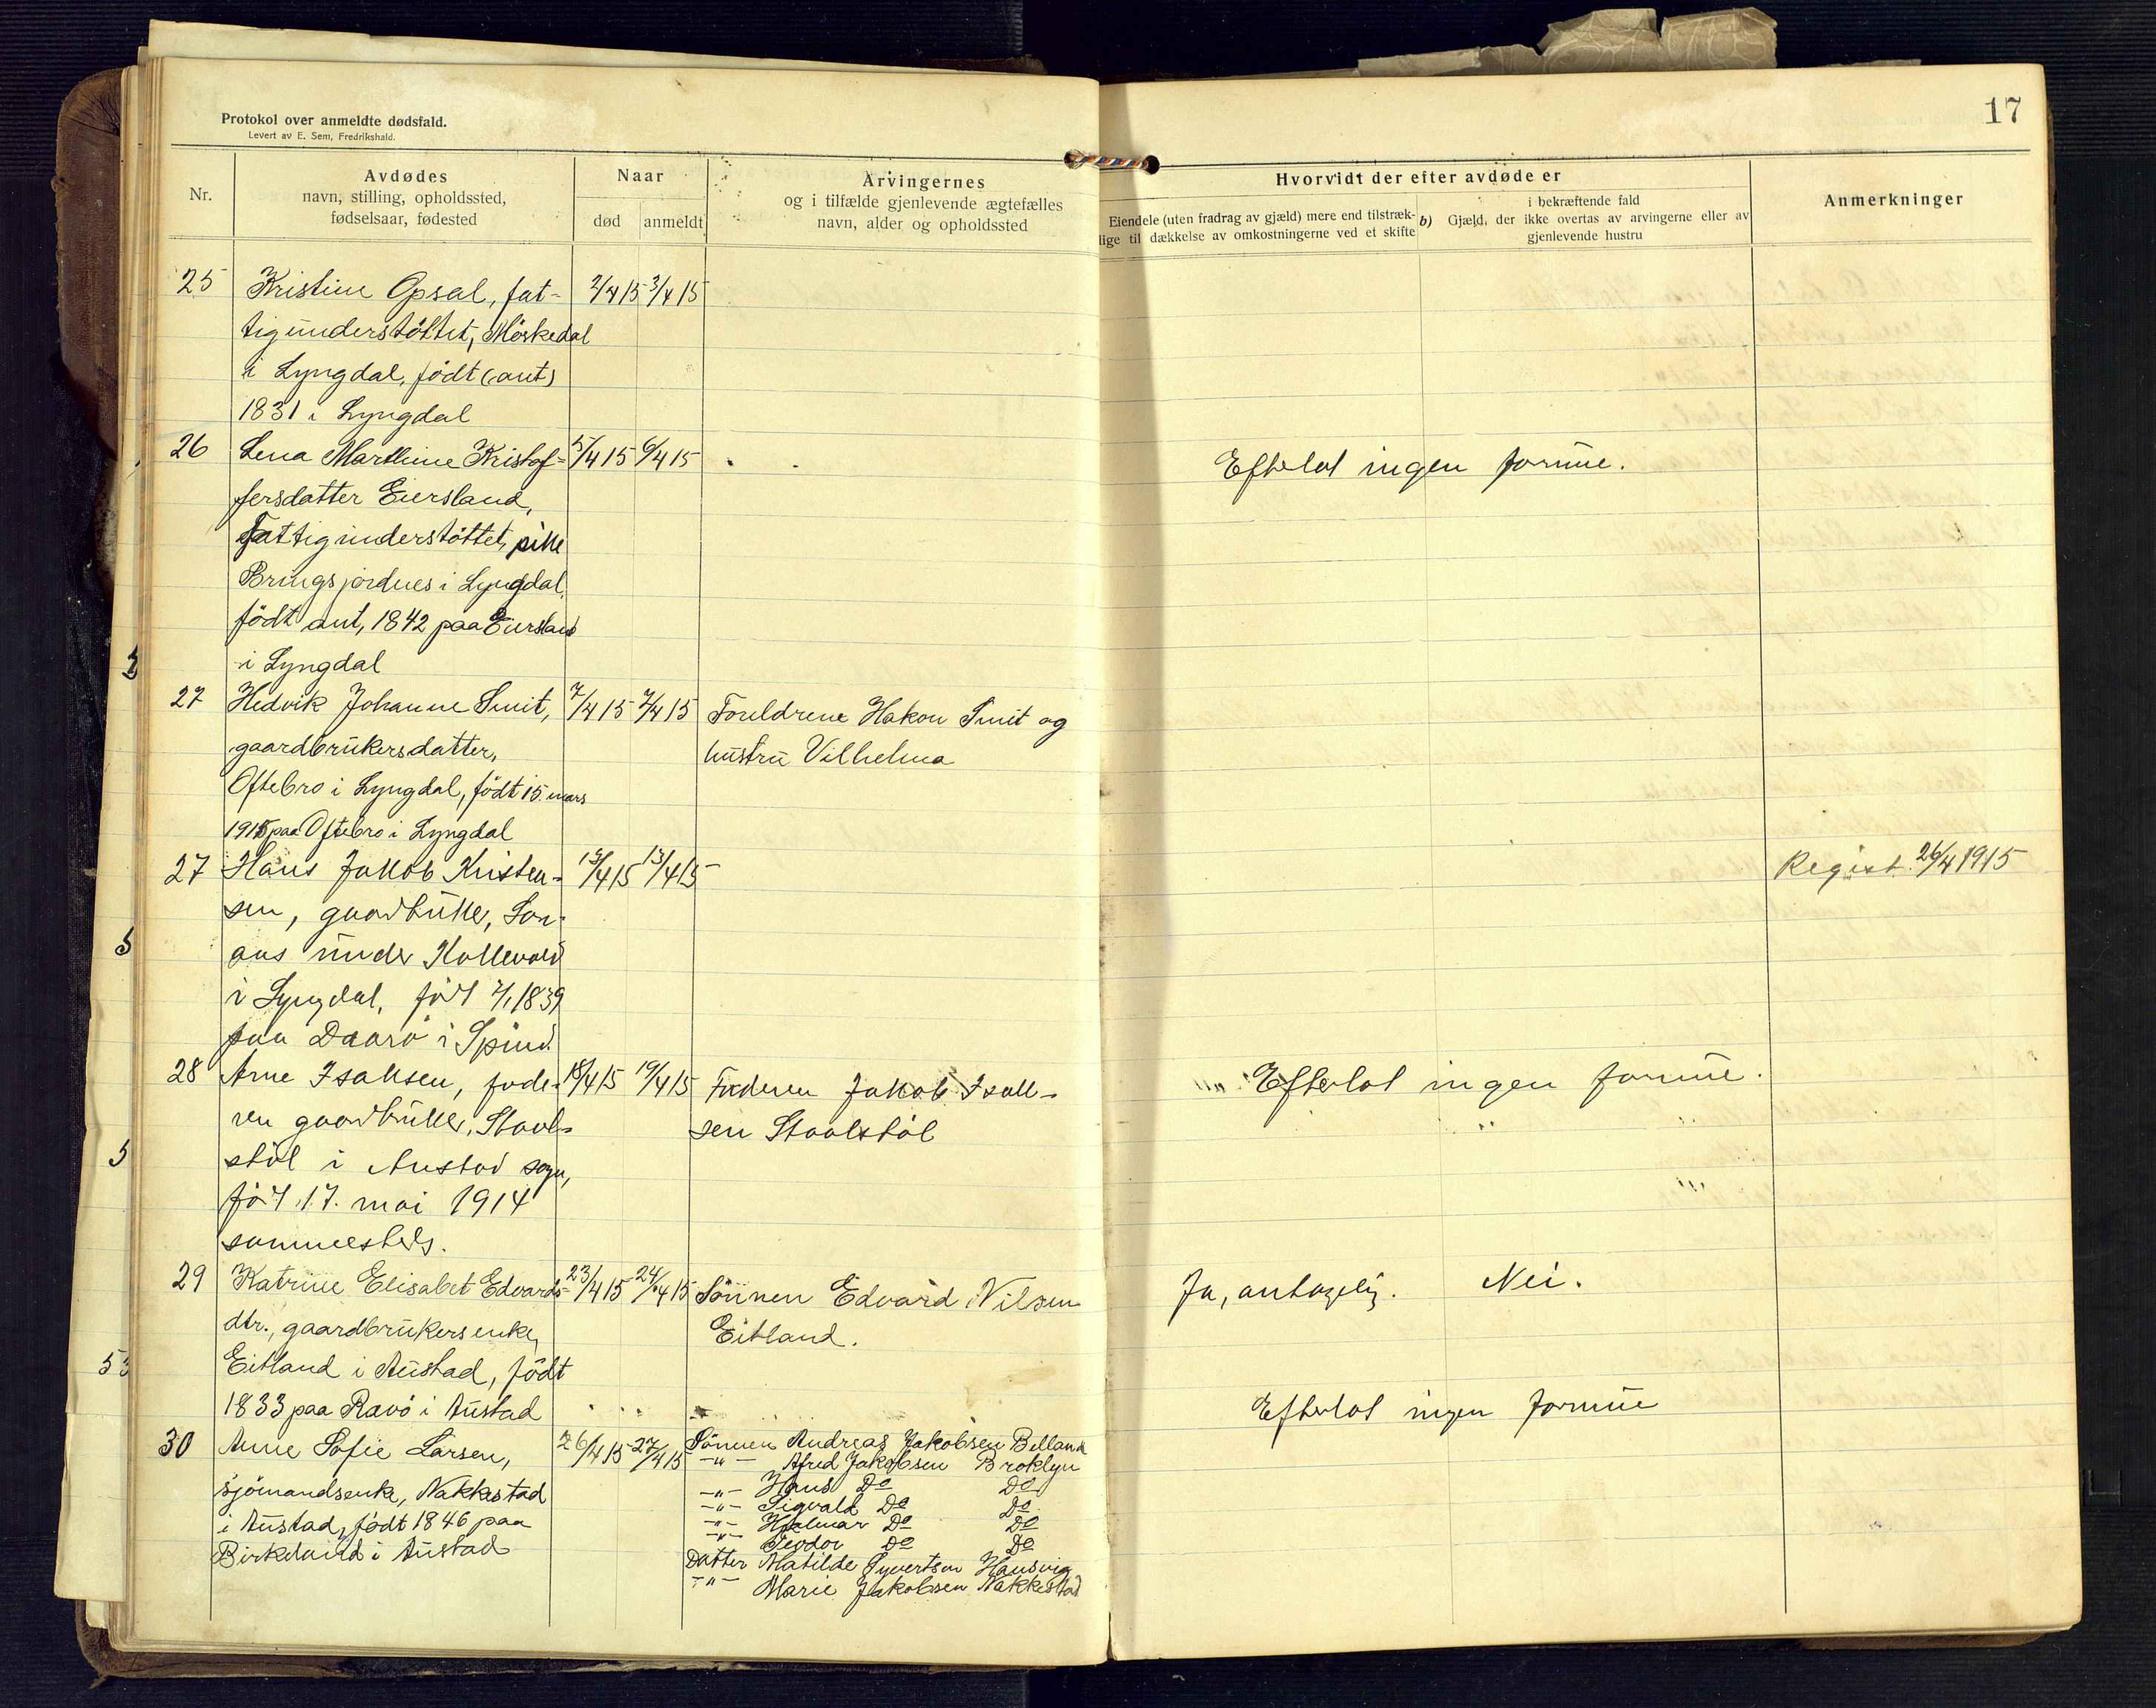 Protokol over anmeldte dødsfald.
Levert av E. Sem, Fredrikshald.
17
Nr.
Avdødes
navn, stilling, opholdssted,
fødselsaar, fødested
Naar
død
anmeldt
Arvingernes
og i tilfælde gjenlevende ægtefælles
navn, alder og opholdssted
Hvorvidt der efter avdøde er
Eiendele (uten fradrag av gjæld) mere end tilstræk-
lige til dækkelse av omkostningerne ved et skifte
b) Gjæld, der
i bekræftende fald
ikke overtas av arvingerne eller av
gjenlevende hustru
Anmerkninger
25 Kristine Opsal, fat- 2/4 15 3/4 15
tigunderstöttet, Møskedal
i Lyngdal, födt (ant)
1831 i Lyngdal
26 Lena Marthine Kristof- 5/4 15 6/4 15 Efterlot ingen formue.
fersdatter Eiersland,
Fattigunderstöttet, pike
Bringsjordnes i Lyngdal,
födt ant, 1842 paa Eiersland
i Lyngdal
27 Hedvik Johanne Smit, 7/4 15 7/4 15 Foreldrene Hakon Smit og
gaardbrukersdatter, hustru Vilhelma
Oftebro i Lyngdal, födt 15. mars
1915 paa Oftebro i Lyngdal
27 Hans Jakob Kristen- 13/4 15 Regist. 26/4 1915
sen, gaardbruker,
under Kollevold
i Lyngdal, född 1839
paa Daarö i Spind.
28 Arne Isaksen, fade- 18/4 15 19/4 15 Faderen Jakob Isak- Efterlot ingen formue.
ren gaardbruker, Staal- sen Staalstöl
stöl i Austad sogn,
född 17. mai 1914
sammesteds.
29 Katrine Elisabet Edvards- 23/4 15 24/4 15 Sönnen Edvard Nilsen Ja, antagelig. Nei.
dtr., gaardbrukersenke, Eitland.
Eitland i Austad, födt
1833 paa Ravö i Austad Efterlot ingen formue
30 Anne Sofie Larsen, 26/4 15 27/4 15 Sönnen Andreas Jakobsen Belland
sjömandsenke, Nakkestad -"- Afred Jakobsen Broklyn
i Austad, födt 1846 paa -"- Hans Do Do
Birkeland i Austad -"- Sigvald Do Do
-"- Hjelmar Do Do
-"- Teodor Do Do
Datter Matilde Syvertsen Hausvig
-"- Marie Jakobsen Nakkestad